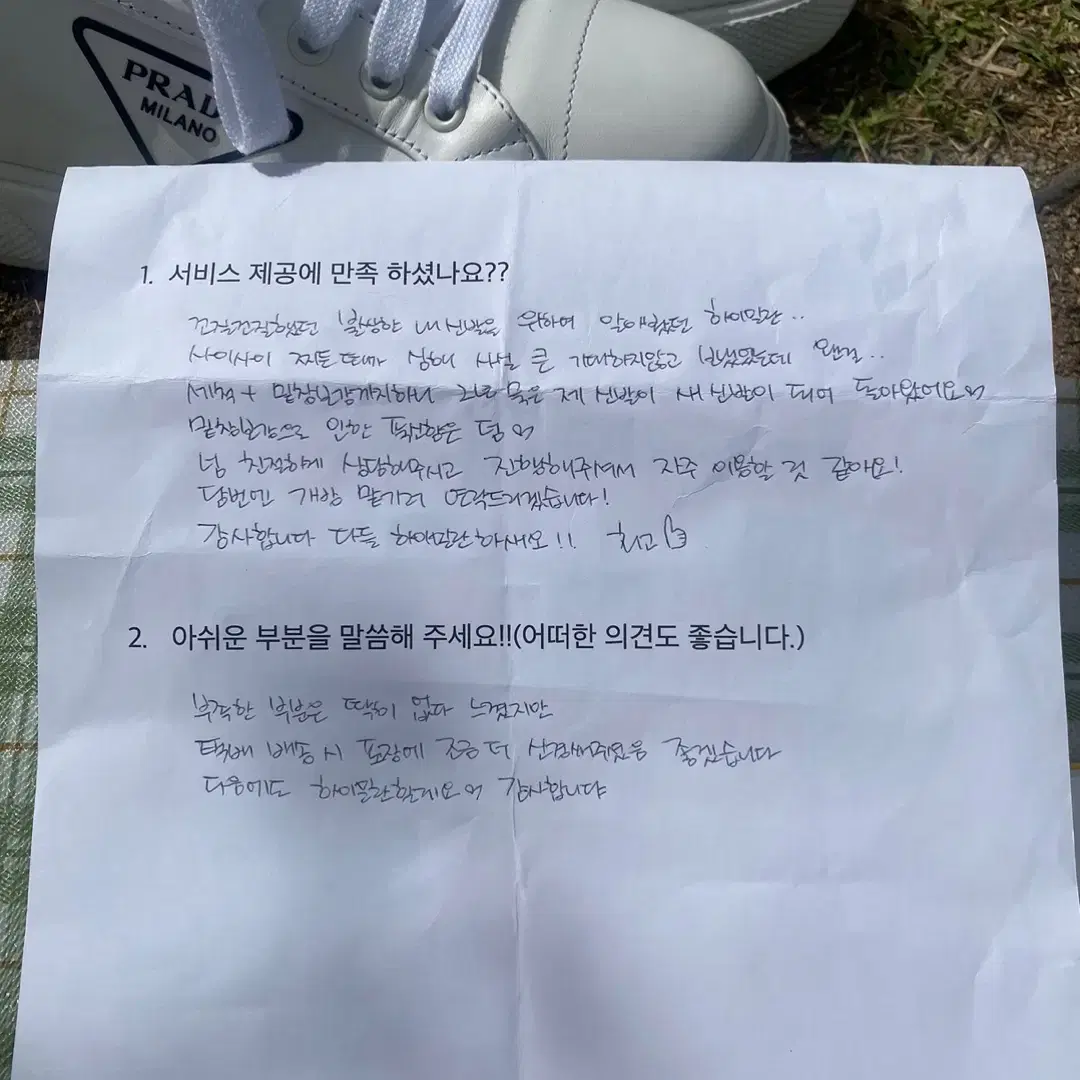 PRAD
MILANO
1. 서비스 제공에 만족 하셨나요??
꼬질꼬질했던 불쌍한 내 신발을 위하여 하이말란..
사이사이 찌든때가 심해 사실 큰 기대하지않고 보냈었는데 왠걸..
세척 + 밑창보강까지하니 제 신발이 새 신발이 되어 돌아왔어요
밑창보강으로 인한 푹신함은 덤
넘 친절하게 상담해주시고 진행해주셔서 자주 이용할 것 같아요!
담번엔 가방 맡기러 연락드리겠습니다!
감사합니다 다들 하세요!! 최고
2. 아쉬운 부분을 말씀해 주세요!!(어떠한 의견도 좋습니다.)
부족한 부분은 딱히 없다 느꼈지만
택배 배송 시 포장에 조금 더 좋겠습니다
다음에도 감사합니다